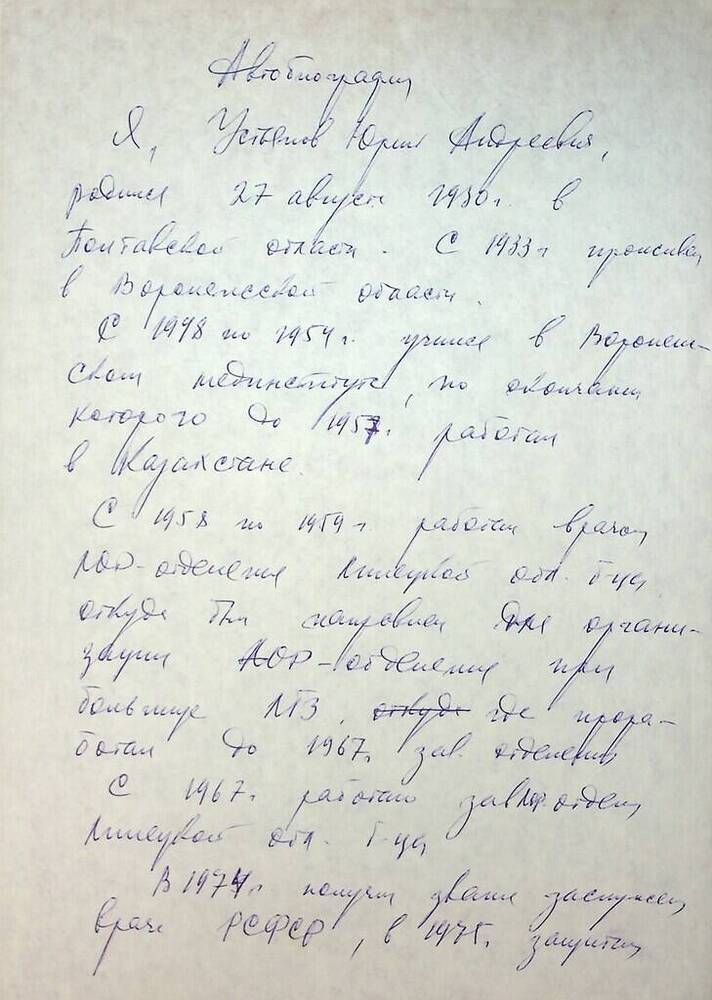 Автобиография
Я, Устинов Юрий Андреевич,
родился 27 августа 1930г. в
Полтавской области. С 1933г проживал
в Воронежской области.
С 1948 по 1954г. учился в Воронеж-
ском мединституте, по окончании
которого до 1957г. работал
в Казахстане.
С 1958 по 1959г. работал врачом
ЛОР-отделения Липецкой обл. б-цы,
откуда был направлен для органи-
зации ЛОР-отделения при
больнице ЛТЗ, откуда где прора-
ботал до 1967г. зав. отделения
С 1967г. работаю зав ЛОР. отдел
Липецкой обл. б-цы
В 1974г. получил звание заслужен
врача РСФСР, в 1975г. защитил